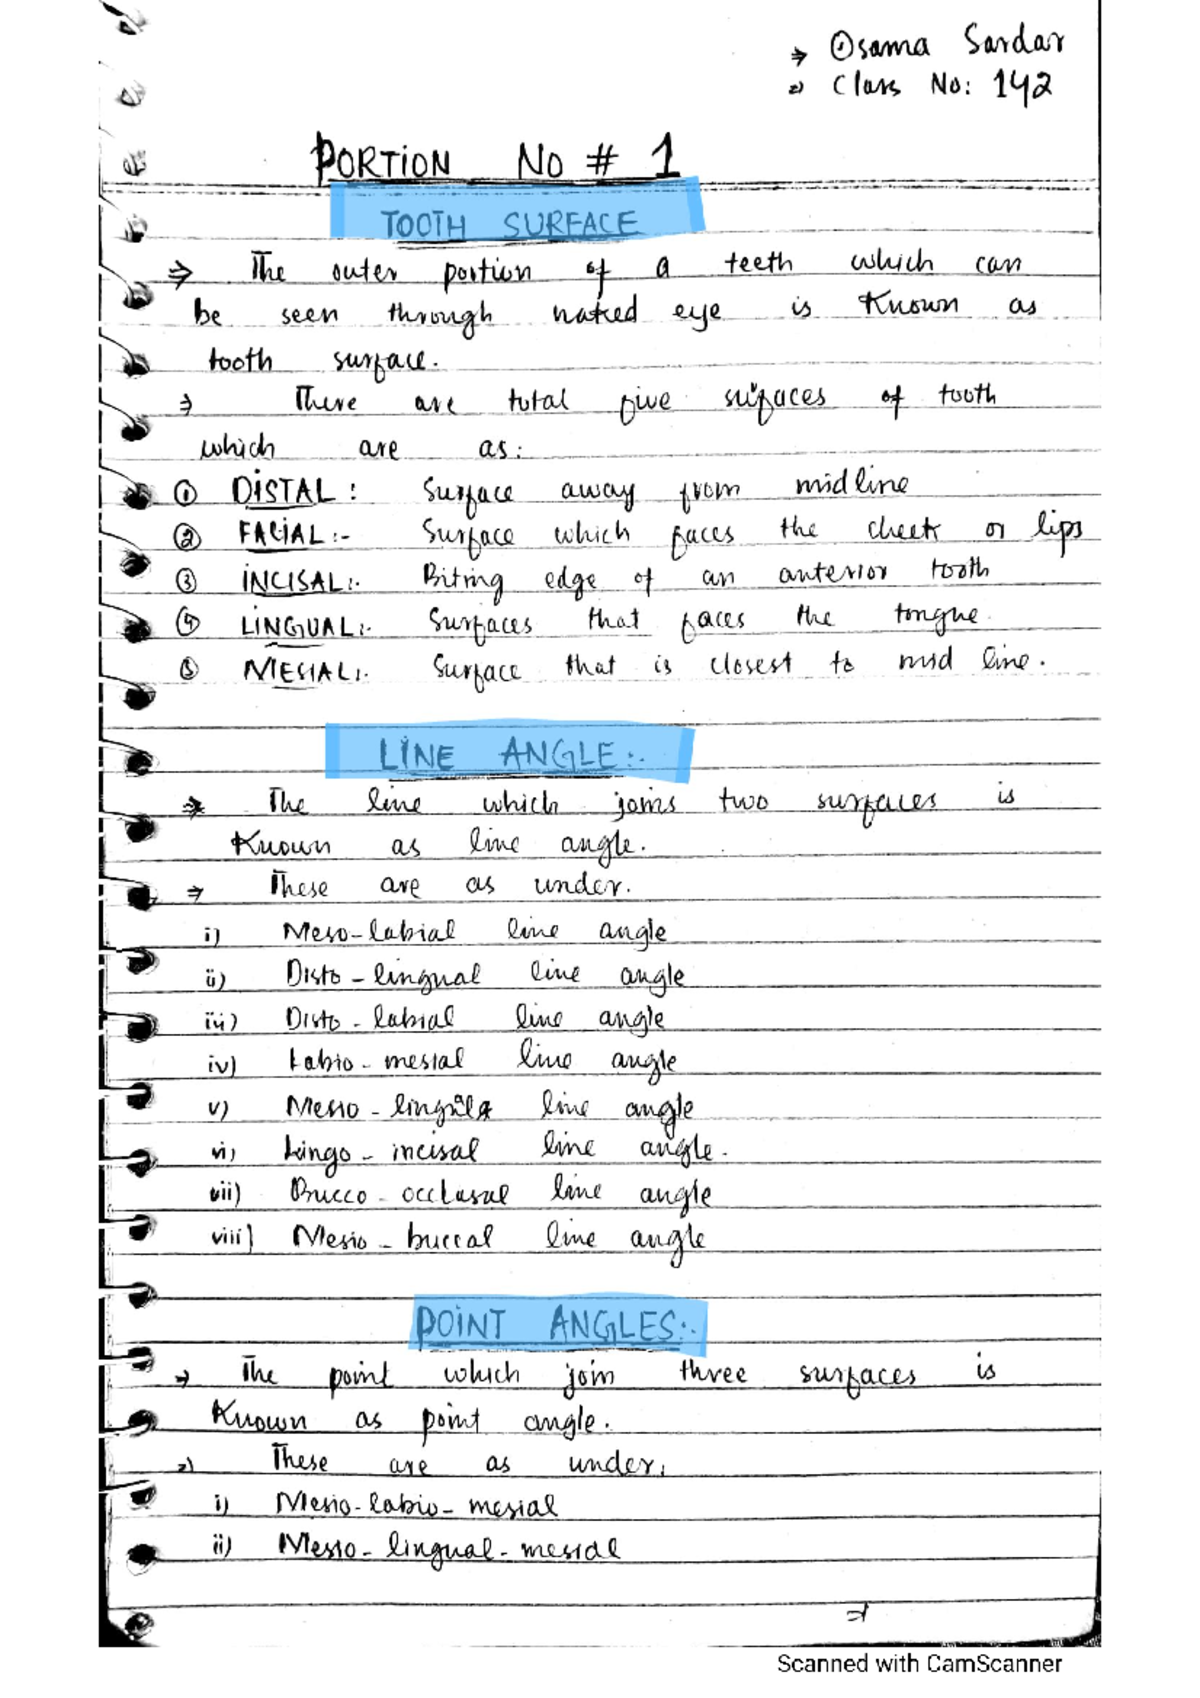 ⇒ Osama Sardar
⇒ Class No: 142
PORTION NO # 1
TOOTH SURFACE
⇒ The outer portion of a teeth which can
be seen through naked eye is Known as
tooth surface.
⇒ There are total five surfaces of tooth
which are as:
① DISTAL: Surface away from midline
② FACIAL:- Surface which faces the cheek or lips
③ INCISAL:. Biting edge of an anterior tooth
④ LINGUAL:. Surfaces that faces the tongue.
⑤ MESIAL:. Surface that is closest to mid line.
LINE ANGLE:.
⇒ The line which joins two surfaces is
Known as line angle.
⇒ These are as under.
i) Meso-labial line angle
ii) Disto-lingual line angle
iii) Disto-labial line angle
iv) Labio-mesial line angle
v) Mesio-lingual line angle
vi) Lingo-incisal line angle.
vii) Bucco-occlusal line angle
viii) Mesio-buccal line angle
POINT ANGLES:.
→ The point which join three surfaces is
Known as point angle.
⇒ These are as under:
i) Mesio-labio-mesial
ii) Mesio-lingual-mesial
Scanned with CamScanner